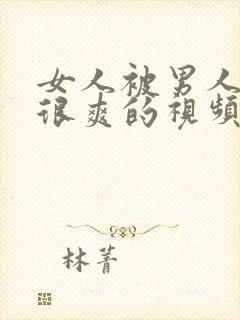 女人被男人
很爽的視頻
林菁